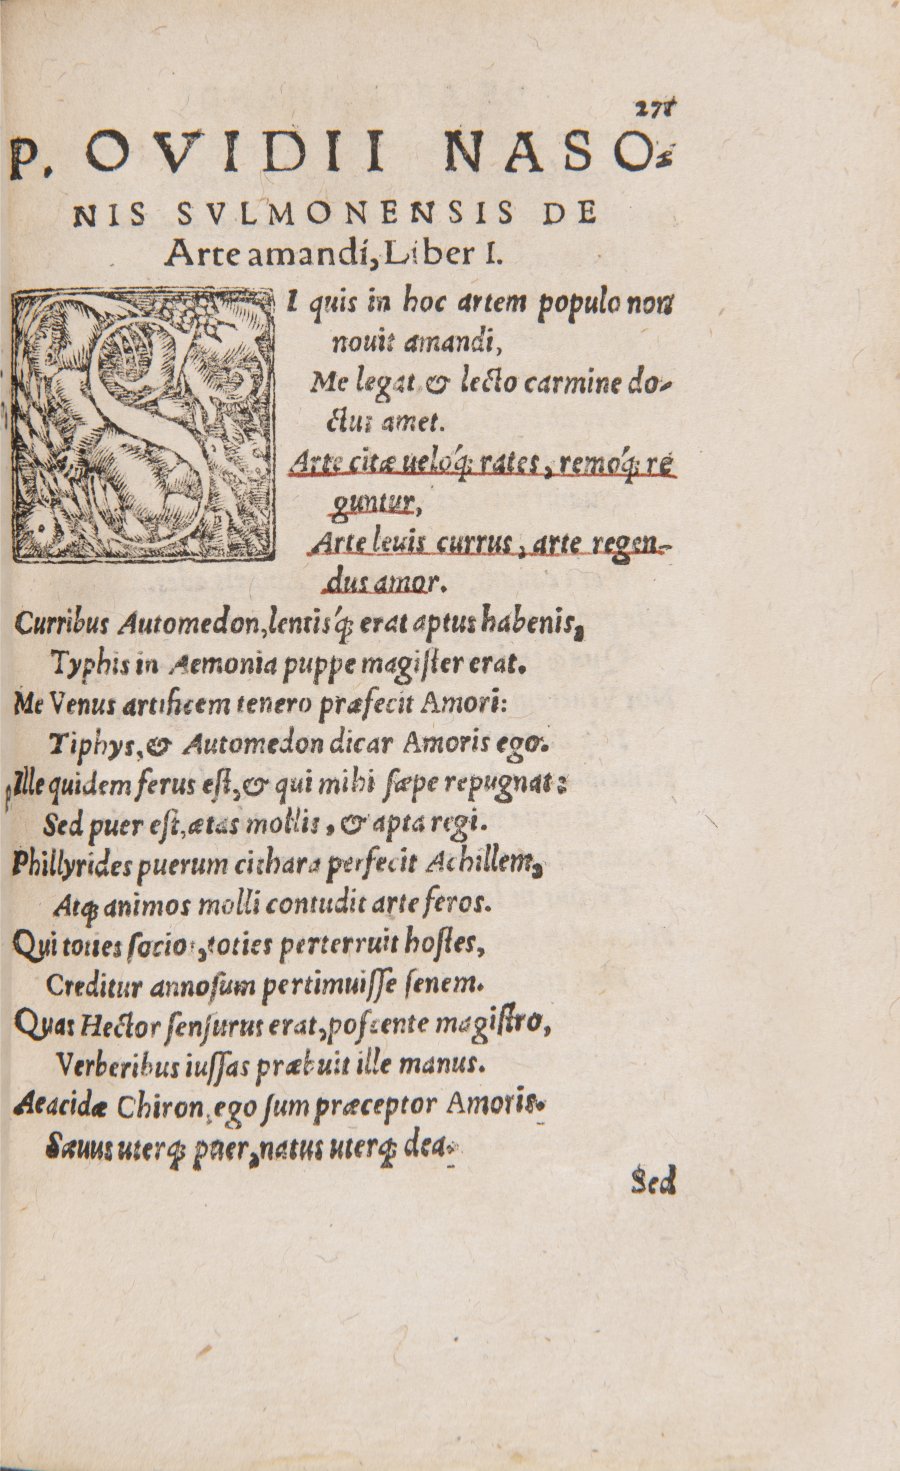 271
P. OVIDII NASO-
NIS SVLMONENSIS DE
Arte amandi, Liber I.
SI quis in hoc artem populo non
nouit amandi,
Me legat, & lecto carmine do-
ctus amet.
Arte citæ ueloq́; rates, remoq́; re
guntur,
Arte leuis currus, arte regen-
dus amor.
Curribus Automedon, lentisq́; erat aptus habenis,
Typhis in Aemonia puppe magister erat.
Me Venus artificem tenero præfecit Amori:
Tiphys, & Automedon dicar Amoris ego.
Ille quidem ferus est, & qui mihi sæpe repugnat:
Sed puer est, ætas mollis, & apta regi.
Phillyrides puerum cithara perfecit Achillem,
Atq; animos molli contudit arte feros.
Qui toties socios, toties perterruit hostes,
Creditur annosum pertimuisse senem.
Quas Hector sensurus erat, poscente magistro,
Verberibus iussas præbuit ille manus.
Aeacidæ Chiron, ego sum præceptor Amoris.
Sæuus uterq; puer, natus uterq; dea.
Sed